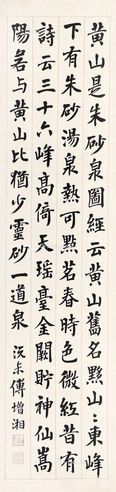 黄山是朱砂泉圖經云黄山舊名黟山〻東峰
下有朱砂湯泉熱可點茗春時色微紅昔有
詩云三十六峰高倚天瑶臺金闕貯神仙嵩
陽若与黄山比猶少靈砂一道泉
沅未傅增湘